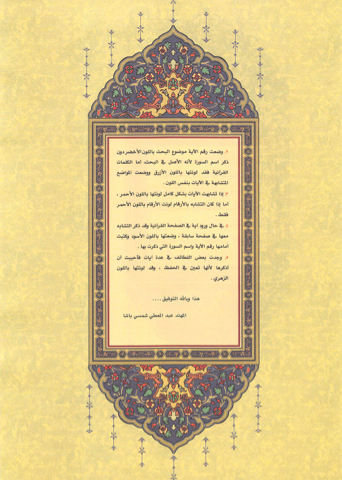 ٢. وضعت رقم الآية موضوع البحث باللون الأخضر دون
ذكر اسم السورة لأنه الأصل في البحث اما الكلمات
القرآنية فقد لونتها باللون الأزرق ووضعت المواضع
المتشابهة في الآيات بنفس اللون.
٣. إذا تشابهت الآيات بشكل كامل لونتها باللون الأحمر ،
اما إذا كان التشابه بالأرقام لونت الأرقام باللون الأحمر
فقط .
٤. في حال ورود آية في الصفحة القرآنية وقد ذكر التشابه
معها في صفحة سابقة ، وضعتها باللون الأسود وكتبت
امامها رقم الآية واسم السورة التي ذكرت بها .
٥. وجدت بعض اللطائف في عدة آيات فأحببت أن
أذكرها لأنها تعين في الحفظ ، وقد لونتها باللون
الزهري .
هذا وبالله التوفيق ....
المهند عبد المعطي شمسي باشا